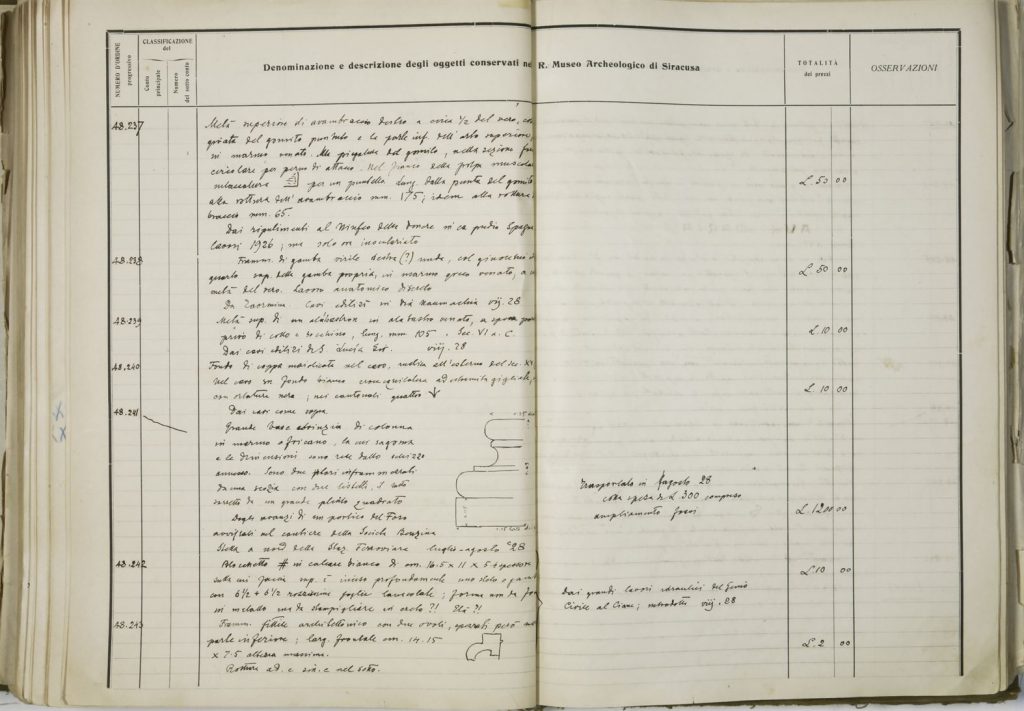 NUMERO D'ORDINE progressivo
CLASSIFICAZIONE del
Conto principale
Numero del sotto conto
Denominazione e descrizione degli oggetti conservati nel R. Museo Archeologico di Siracusa
TOTALITÀ dei prezzi
OSSERVAZIONI
48.237
Metà superiore di avambraccio destro a circa 1/2 del vero, con
del gomito puntuto e la parte inf. dell'arto superiore,
in marmo venato. Alla piegatura del gomito, nella sezione foro
circolare per perno di attacco. Nel fianco della polpa muscolare
per un puntello. Lung. dalla punta del gomito
alla rottura dell'avambraccio mm. 175; idem alla rottura
braccio mm. 65.
L. 50 00
Dai ripulimenti al Ninfeo delle in ca predio Spagna
lavori 1926; ma solo ora inventariato
48.238
Framm. di gamba virile destra (?) nuda, col ginocchio e
quarto sup. della gamba propria, in marmo greco venato, a
metà del vero. Lavoro anatomico discreto
L. 50 00
Da Taormina. Cavi edilizi in via Naumachia viij. 28
48.239
Metà sup. di un alabastron in alabastro venato, a
privo di collo e bocchino, lung. mm 105. Sec. VI a. C.
L. 10 00
Dai cavi edilizi di S. Lucia viij. 28
48.240
Fondo di coppa maiolicata nel cavo, rustica all'esterno del sec.
nel cavo su fondo bianco croce equilatera ad estremità gigliate,
con orlature nere; nei cantonali quattro
L. 10 00
Dai cavi come sopra
48.241
Grande base attica di colonna
in marmo africano, la cui sagoma
e le dimensioni sono rese dallo schizzo
annesso. Sono due tori inframmezzati
da una scozia con due listelli, il tutto
sorretto da un grande plinto quadrato
Dagli avanzi di un portico del Foro
avvistati nel cantiere della Società Benzina
a nord della Staz. Ferroviaria luglio-agosto 28
Trasportata in agosto 28
colla spesa di L. 300 compreso
ampliamento
L. 1200 00
48.242
Blocchetto in calcare bianco di cm. 16.5 x 11 x 5 spessore
sulla cui faccia sup. è inciso profondamente uno stelo
con 6 1/2 + 6 1/2 foglie lanceolate; forma non da
in metallo ma da stampigliare in ?! Età ?!
Dai grandi lavori idraulici del Genio
Civile al Ciane; viij. 28
L. 10 00
48.243
Framm. fittile architettonico con due ovoli, separati
parte inferiore; larg. frontale cm. 14.15
x 7.5 altezza massima.
Rotture a d. e sin. e nel sotto.
L. 2 00